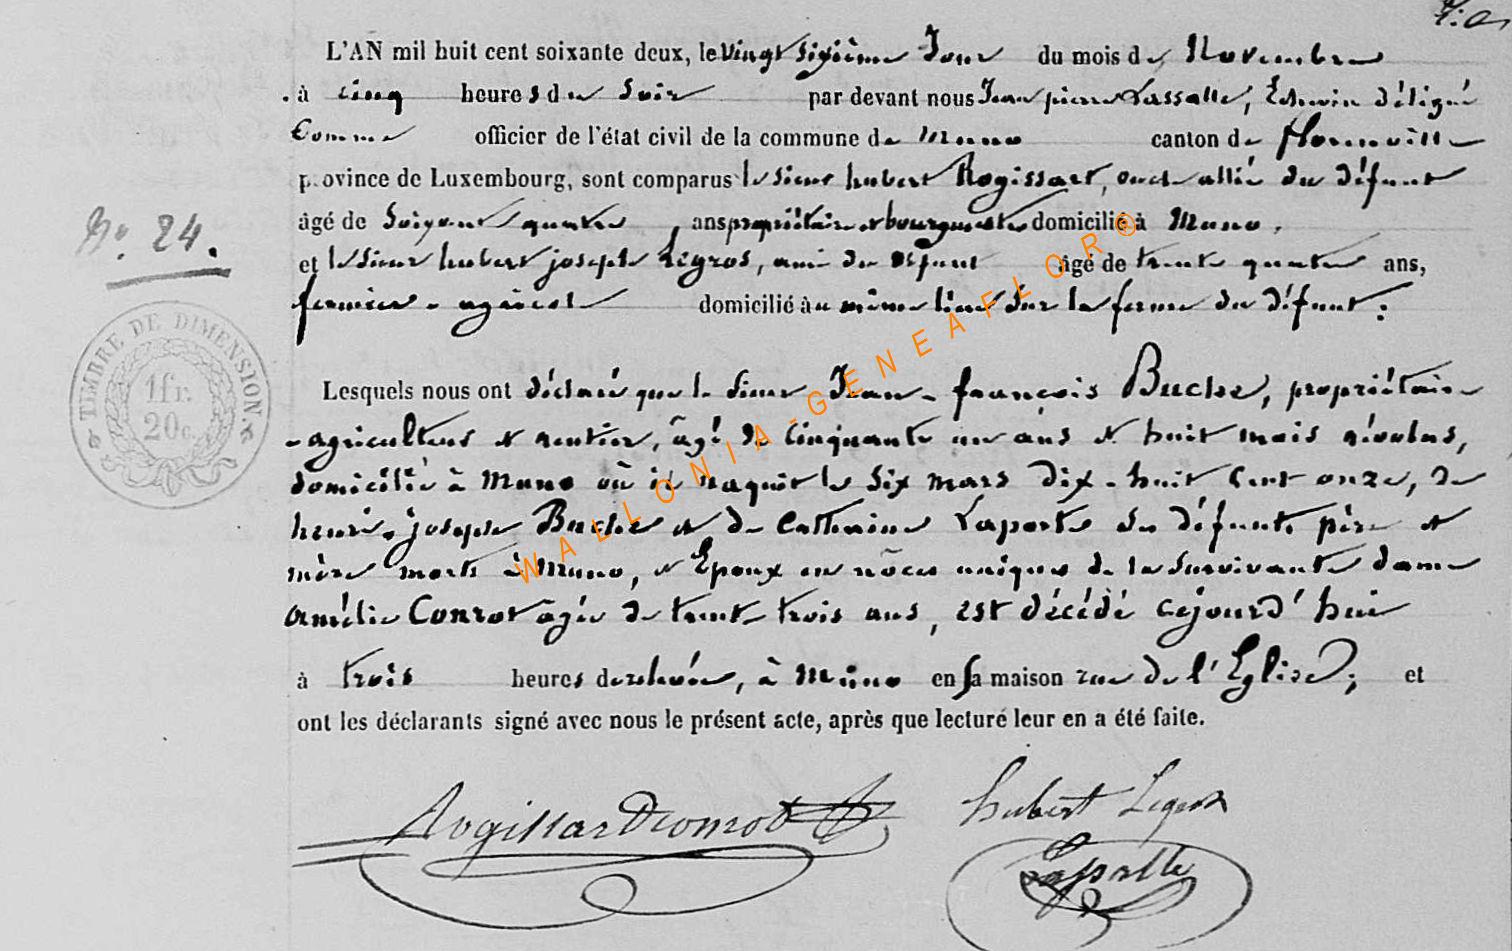 L'AN mil huit cent soixante deux, le vingt sixième Jour du mois de Novembre
à cinq heures du soir par devant nous Jean pierre Lassalle, Echevin délégué
Comme officier de l'état civil de la commune de Muno canton de florenville
province de Luxembourg, sont comparus le sieur hubert Rogissart, oncle allié du défunt
âgé de soixante quatre ans propriétaire et bourgmestre domicilié à Muno,
et le sieur hubert joseph Legros, ami du défunt âgé de trente quatre ans,
fermier-agricole domicilié au même lieu sur la ferme du défunt;
N° 24.
TIMBRE DE DIMENSION
1 fr.
20 c.
Lesquels nous ont déclaré que le sieur Jean-françois Buche, propriétaire
-agriculteur et rentier, âgé de cinquante un ans et huit mois révolus,
domicilié à Muno où il naquit le six mars dix-huit cent onze, de
henri-joseph Buche et de Catherine Laporte ses défunts père et
mère morts à Muno, et Epoux en nôces uniques de la survivante dame
Amélie Conrot âgée de trente-trois ans, est décédé cejourd'hui
à trois heures de relevée, à Muno en sa maison rue de l'Eglise; et
ont les déclarants signé avec nous le présent acte, après que lecture leur en a été faite.
Rogissart Conrot hubert Legros
Lassalle
WALLONIA-GENEAFLOR®